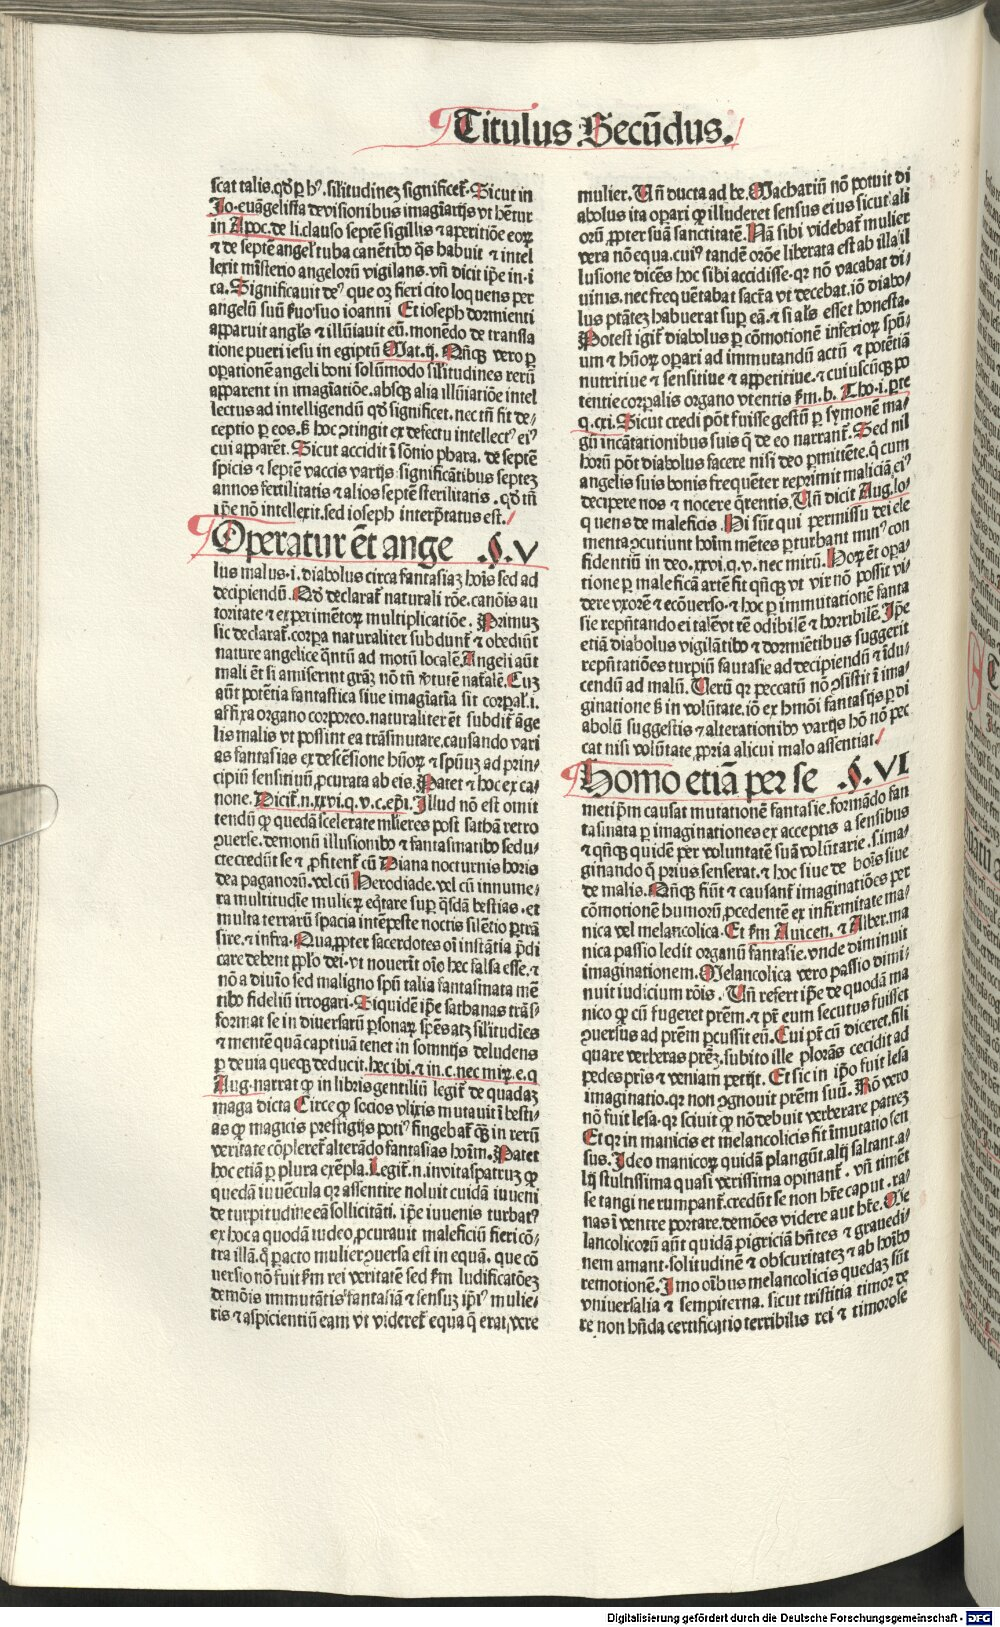 Titulus Secūdus.
scat talis. qđ ꝑ hꝰ. siĺitudinez significet̄. Sicut in
Jo. euāgelista de visionibus imagīarijs vt hētur
in Apoc. de li. clauso septē sigillis ⁊ aperitiōe eoꝝ
⁊ de septē angeĺ tuba canētibꝰ q̄s habuit ⁊ intel
lexit mīsterio angeloꝝ vigilans. vn̄ dicit ip̄e in. i
ca. Significauit deꝰ que oꝫ fieri cito loquens per
angelū suū seruo suo ioanni Et ioseph dormienti
apparuit angĺs ⁊ illūiauit eū. monēdo de transla
tione pueri iesu in egiptū Mat. ij. Nn̄qꝫ vero ꝑ
operationē angeli boni solūmodo siĺitudines rerū
apparent in imagīatiōe. absqꝫ alia illūiatiōe intel
lectus ad intelligendū qđ significet. nec tn̄ fit de-
ceptio ꝑ eos. s̄ hoc ↄtingit ex defectu intellectꝰ eiꝰ
cui apparēt. Sicut accidit ī sōnio phara. de septē
spicis ⁊ septē vaccis varijs significātibus septez
annos fertilitatis ⁊ alios septē sterilitatis. qđ tn̄
ip̄e nō intellexit. sed ioseph interp̄tatus est.
Operatur ēt ange .§. V
lus malus. i. diabolus circa fantasiaꝫ hoīs sed ad
decipiendū. Qđ declarat̄ naturali rōe. canōis au
toritate ⁊ experimētoꝝ multiplicatiōe. Primuꝫ
sic declarat̄. corpa naturaliter subdunt̄ ⁊ obediūt
nature angelice q̄ntū ad motū localē. Angeli aūt
mali ēt si amiserint grāꝫ nō tn̄ v̄tutē nat̄alē. Cuꝫ
aūt potētia fantastica siue imagīatīa sit corꝑaĺ. i.
affixa organo corporeo. naturaliter ēt subdit̄ āge
lis malis vt possint ea trāsmutare. causando vari
as fantasias ex descēsione hūoꝝ ⁊ spūuꝫ ad prin-
cipiū sensitiuū ꝓcurata ab eis. Patet ⁊ hoc ex ca-
none. Dicit̄. n. xxvi. q. v. c. ep̄i. Illud nō est omit
tendū ꝙ quedā scelerate mĺieres post sathā retro
ↄuerse. demonū illusionibꝰ ⁊ fantasmatibꝰ sedu-
cte credūt se ⁊ ꝓfitent̄ cū Diana nocturnis horis
dea paganoꝝ. vel cū Herodiade. vel cū innume-
ra multitudīe mulieꝝ eq̄tare suꝑ q̄sdā bestias. et
multa terraꝝ spacia intēpeste noctis silētio ꝑtrā
sire. ⁊ infra. Quaꝓpter sacerdotes oī instātia p̄di
care debent ꝓplo dei. vt nouerīt oīo hec falsa esse. ⁊
nō a diuīo sed maligno spū talia fantasmata mē
tibꝰ fideliū irrogari. Siquidē ip̄e sathanas trās-
format se in diuersaꝝ ꝑsonaꝝ spēs atꝫ siĺitudīes
⁊ mentē quā captiuā tenet in somnijs deludens
ꝑ deuia queqꝫ deducit. hec ibi. ⁊ in. c. nec miꝝ. e. q
Aug. narrat ꝙ in libris gentiliū legit̄ de quadaꝫ
maga dicta Circe ꝙ socios vlixis mutauit ī besti-
as ꝙ magicis prestigijs potiꝰ fingebat̄ q̄ꝫ in rerū
veritate cōpleret̄ alterādo fantasias hoīm. Patet
hoc etiā ꝑ plura exēpla. Legit̄. n. in vitaspatruꝫ ꝙ
quedā iuuēcula qꝛ assentire noluit cuidā iuueni
de turpitudīne eā sollicitāti. ip̄e iuuenis turbatꝰ
ex hoc a quodā iudeo ꝓcurauit maleficiū fieri cō-
tra illā. q̄ ꝑ acto mulier ↄuersa est in equā. que cō
uersio nō fuit sm̄ rei veritatē sed sm̄ ludificatōeꝫ
demōis immutātis fantasiā ⁊ sensuꝫ ip̄iꝰ mulie-
ris ⁊ aspicientiū eam vt videret̄ equa q̄ erat vere
mulier. Un̄ ducta ad be. Machariū nō potuit di
abolus ita oꝑari ꝙ illuderet sensus eius sicut ali
oꝝ ꝓpter suā sanctitatē. Nā sibi videbat̄ mulier
vera nō equa. cuiꝰ tandē orōe liberata est ab illa il
lusione dicēs hoc sibi accidisse. qꝛ nō vacabat di-
uinis. nec frequētabat sacr̄a vt decebat. iō diabo-
lus ptātez habuerat suꝑ eā. ⁊ si aĺs esset honesta.
Potest igit̄ diabolus ꝑ cōmotionē inferioꝝ spū-
um ⁊ hūoꝝ oꝑari ad immutandū actū ⁊ potētiā
nutritiue ⁊ sensitiue ⁊ appetitiue. ⁊ cuiuscūqꝫ po
tentie corꝑalis organo vtentis sm̄. b. Tho. i. ꝑte
q. cxi. Sicut credi pōt fuisse gestū ꝑ symonē ma-
gū incātationibus suis q̄ de eo narrant̄. Sed nil
hoꝝ pōt diabolus facere nisi deo ꝑmittēte. q̄ cum
angelis suis bonis frequēter reprimit maliciā eiꝰ
decipere nos ⁊ nocere q̄rentis. Un̄ dicit Aug. lo-
quens de maleficis. Hi sūt qui permissu dei ele
menta ↄcutiunt hoīm mētes ꝑturbant minꝰ con
fidentiū in deo. xxvi. q. v. nec mirū. Hoꝝ ēt oꝑa-
tione ꝑ maleficā artē fit qn̄qꝫ vt vir nō possit vi-
dere vxorē ⁊ ecōuerso. ⁊ hoc ꝑ immutationē fanta
sie repn̄tando ei talē vt rē odibilē ⁊ horribilē. Ip̄e
etiā diabolus vigilātibꝰ ⁊ dormiētibus suggerit
repn̄tatiōes turpiū fantasie ad decipiendū ⁊ īdu-
cendū ad malū. Uerū qꝛ peccatū nō ↄsistit ī ima-
ginatione s̄ in volūtate. iō ex hm̄oi fantasijs ꝑ di
abolū suggestis ⁊ alterationibꝰ varijs hō nō pec
cat nisi volūtate ꝓpria alicui malo assentiat.
Homo etiā per se .§. VI
metip̄m causat mutationē fantasie. formādo fan
tasmata ꝑ imaginationes ex acceptis a sensibus
⁊ qn̄qꝫ quidē per voluntatē suā volūtarie. s. ima-
ginando q̄ prius senserat. ⁊ hoc siue de bois siue
de malis. Nn̄qꝫ fiūt ⁊ causant̄ imaginatiōes per
cōmotionē humoꝝ ꝓcedentē ex infirmitate ma-
nica vel melancolica. Et sm̄ Auicen. ⁊ Alber. ma
nica passio ledit organū fantasie. vnde diminuit
imaginationem. Melancolica vero passio dimi-
nuit iudicium rōis. Un̄ refert ip̄e de quodā ma
nico ꝙ cū fugeret prēm. ⁊ pr̄ eum secutus fuisset
ↄuersus ad prēm ꝑcussit eū. Cui pr̄ cū diceret. fili
quare verberas prēꝫ. subito ille plorās cecidit ad
pedes pr̄is ⁊ veniam petijt. Et sic in ip̄o fuit lesa
imaginatio. qꝛ non ↄgnouit prēm suū. Rō vero
nō fuit lesa. qꝛ sciuit ꝙ nō debuit verberare patreꝫ
Et qꝛ in manicis et melancolicis fit īmutatio sen
sus. Ideo manicoꝝ quidā plangūt. alij saltant. a-
lij stultissima quasi verissima opinant̄. vn̄ timēt
se tangi ne rumpant̄. credūt se non hr̄e caput. ra-
nas ī ventre portare. demōes videre aut hr̄e. Me
lancolicoꝝ aūt quidā pigriciā hn̄tes ⁊ grauedi-
nem amant. solitudinē ⁊ obscuritatez ⁊ ab hoībꝰ
remotionē. Imo oībus melancolicis quedaꝫ sūt
vniuersalia ⁊ sempiterna. sicut tristitia timor de
re non hn̄da certificatio terribilis rei ⁊ timorose
Digitalisierung gefördert durch die Deutsche Forschungsgemeinschaft - DFG